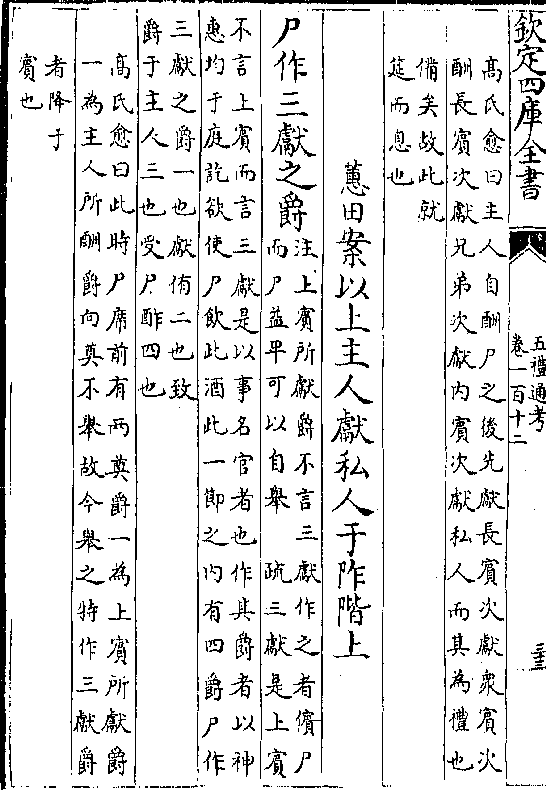 欽定四庫全書
五禮通考
卷一百十二
三三
高氏愈曰主人自酬尸之後先獻長賓次獻衆賓次
酬長賓次獻兄弟次獻内賓次獻私人而其為禮也
備矣故此就
筵而息也
蕙田案以上主人獻私人于阼階上
尸作三獻之爵
注上賓所獻爵不言三獻作之者儐尸
而尸益卑可以自舉 疏三獻是上賓
不言上賓而言三獻是以事名官者也作其爵者以神
惠均于庭訖欲使尸飲此酒此一節之内有四爵尸作
三獻之爵一也獻侑二也致
爵于主人三也受尸酢四也
高氏愈曰此時尸席前有兩奠爵一為上賓所獻爵
一為主人所酬爵向奠不舉故今舉之特作三獻爵
者降于
賓也